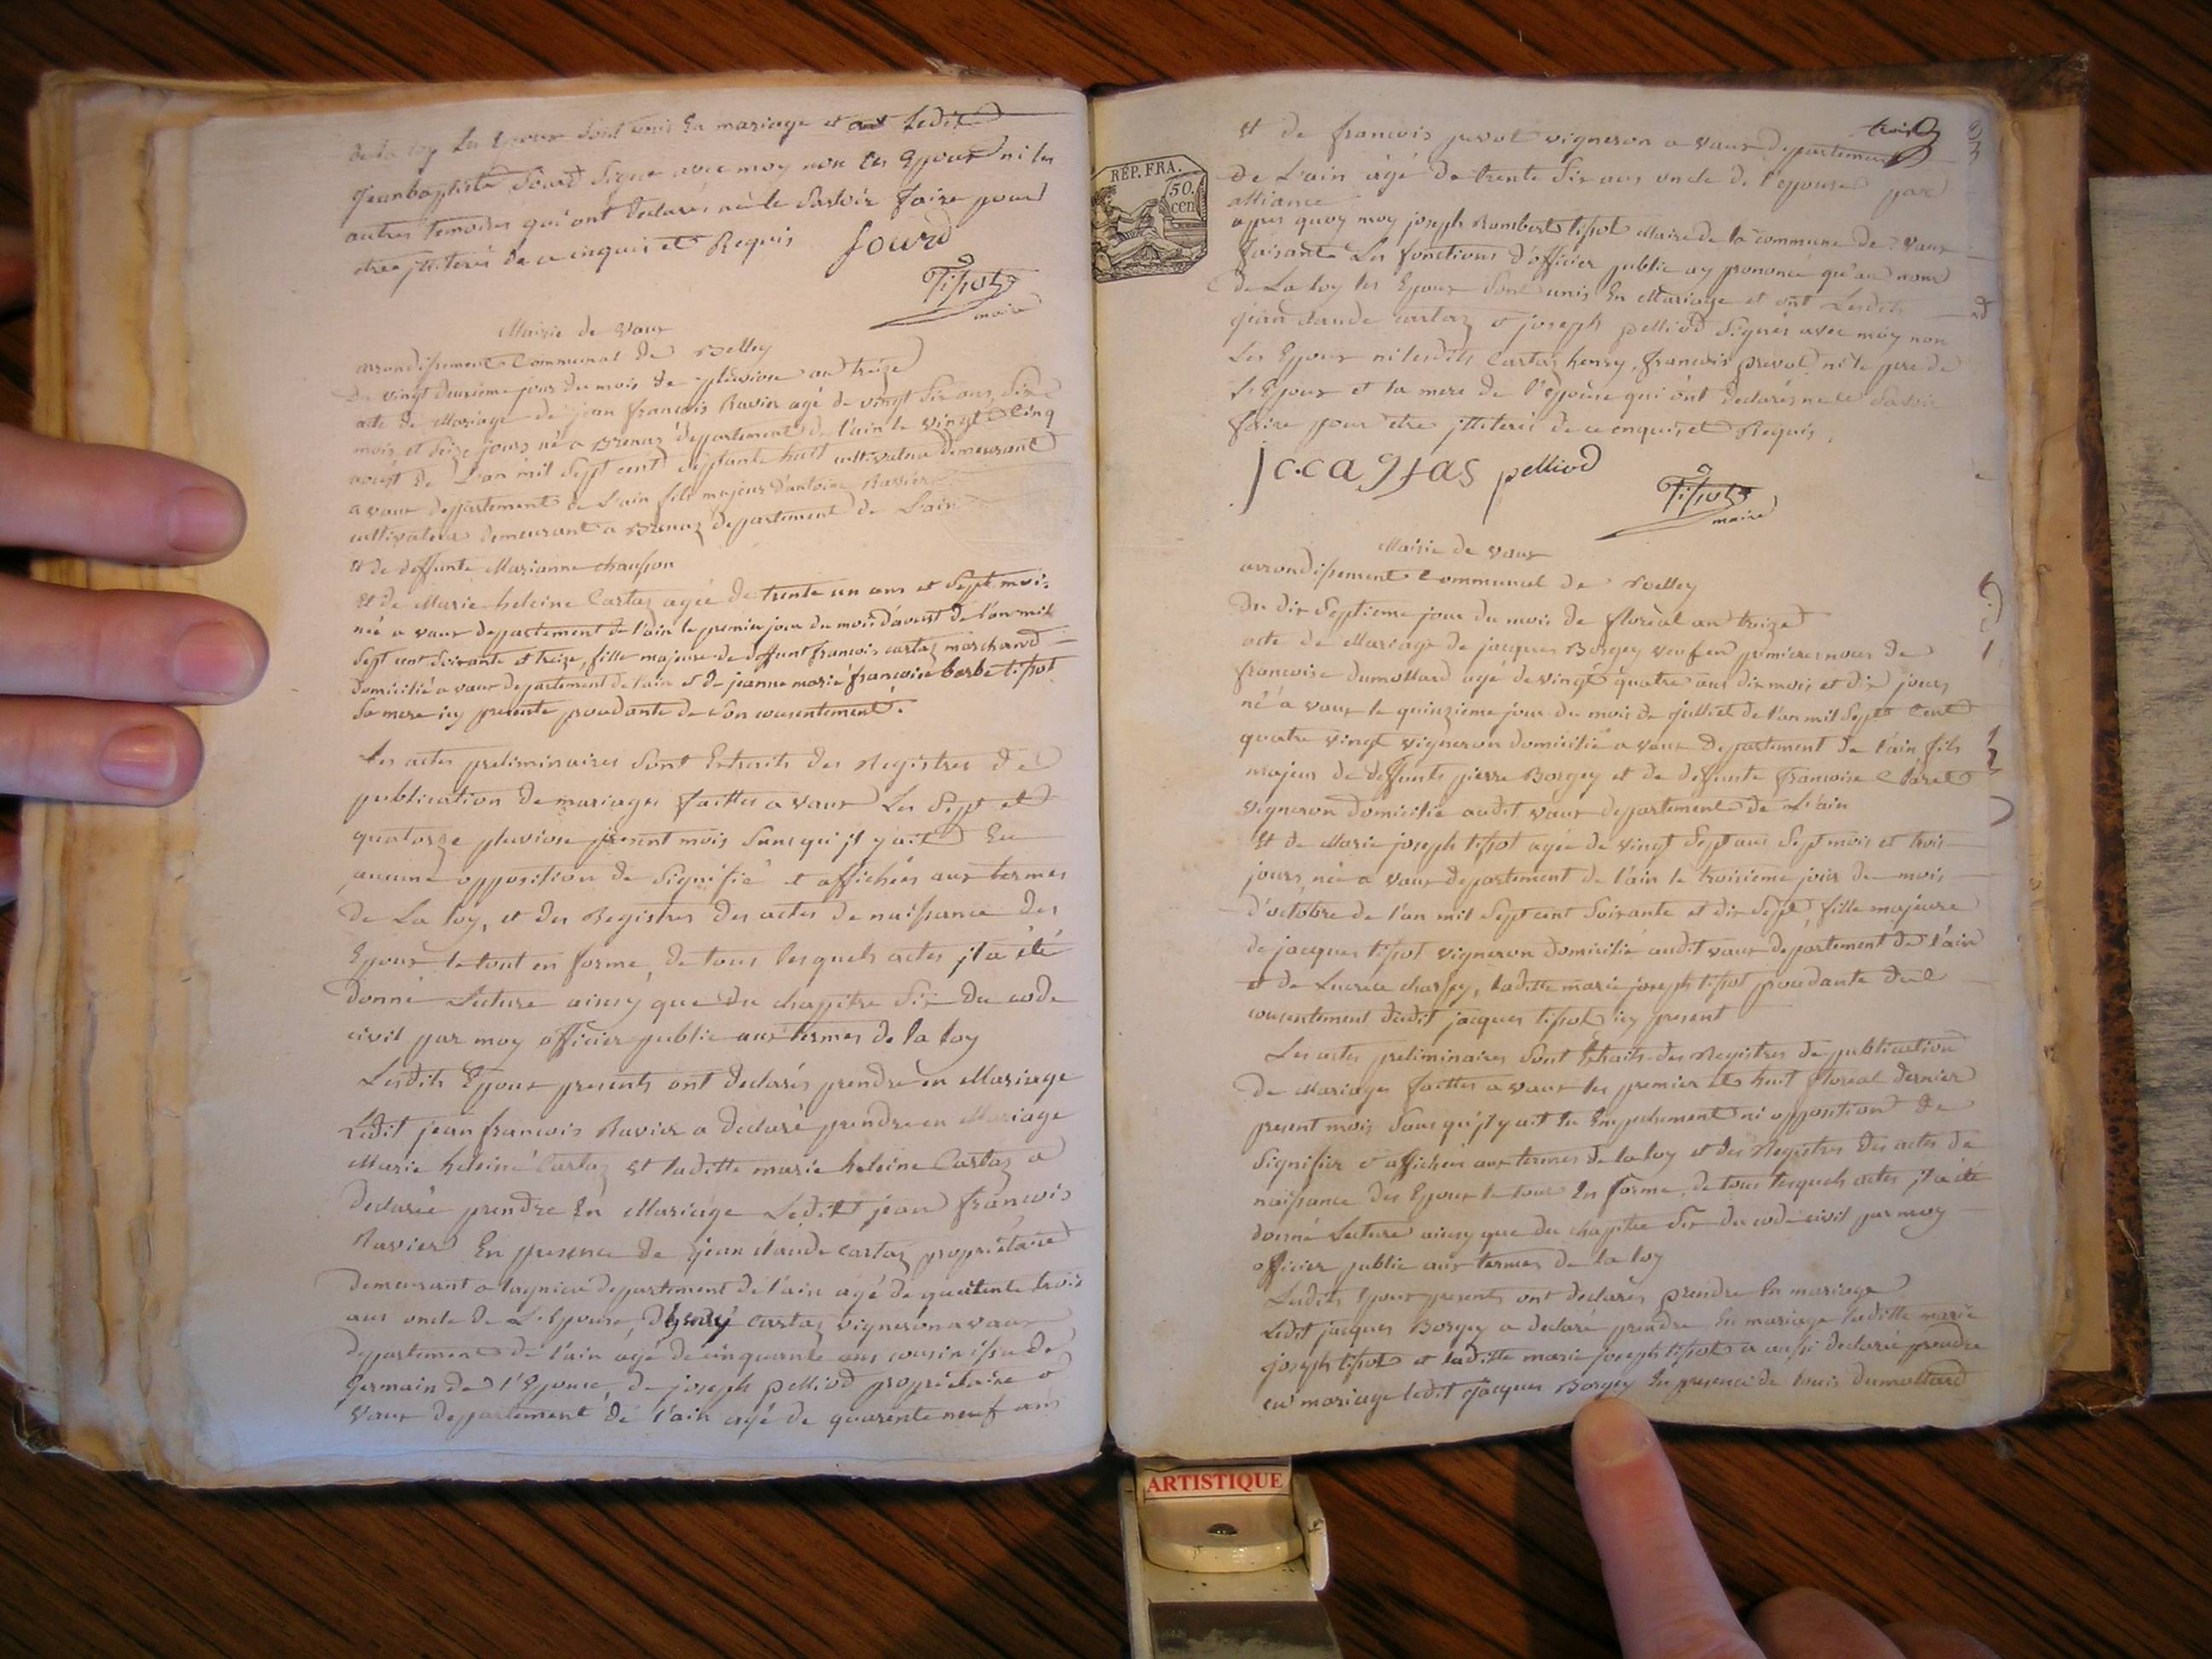 de la loy les Epoux sont unis En mariage et ont Ledit
jeanbaptiste Sourd Signe avec moy non les Epoux ni les
autres temoins qui ont declarés ne le Savoir faire pour
etre jlliterés de ce enquis et Requis
Sourd
Tissot
maire
Mairie de Vaux
arrondissement Communal de Belley
Du vingt deuxieme jour du mois de pluviose an treize
acte de Mariage de jean françois Ravier agé de vingt Six ans, Six
mois et Seize jours né a Brenaz departement de l'ain le vingt Cinq
aoust de L'an mil Sept cent Septante huit cultivateur demeurant
a vaux departement de L'ain fils majeur d'antoine Ravier
cultivateur demeurant a Brenaz departement de L'ain
et de deffunte Marianne chausson
et de Marie heleine Cartaz agée de trente un ans et Sept mois
née a vaux departement de l'ain le premier jour du mois d'avost de l'an mil
Sept cent Soixante et treize, fille majeure de deffunt françois cartaz marchand
domicilié a vaux departement de l'ain et de jeanne marie françoise barbe tissot
Sa mere icy presente procedante de Son consentement.
Les actes preliminaires Sont Extraits des Registres de
publication de mariages faittes a vaux Les Sept et
quatorze pluviose present mois Sans qu'jl y ait Eu
aucune opposition de Signifié et affichées aux termes
de La loy, et des Registres des actes de naissance des
Epoux le tout en forme, de tous lesquels actes jl a été
donné Lecture ainsy que du chapitre Six du code
civil par moy officier public aux termes de la loy
Lesdits Epoux presents ont declarés prendre en Mariage
Ledit jean françois Ravier a declaré prendre en Mariage
Marie heleine Cartaz et laditte marie heleine Cartaz a
declarée prendre En Mariage Ledit jean françois
Ravier En presence de jean claude cartaz proprietaire
demeurant a lagnieu departement de l'ain agé de quarente trois
ans oncle de L'Epouse, d'henry cartaz vigneron a vaux
departement de l'ain agé de cinquante ans cousin issu de
Germain de l'Epouse, de joseph pelliod proprietaire a
Vaux departement de l'ain agé de quarente neuf ans
trois
et de françois prevot vigneron a vaux departement
de L'ain âgé de trente Six ans oncle de l'epouse par
alliance
RÉP. FRA.
50.
cen
apres quoy moy joseph Rambert tissot Maire de la commune de Vaux
faisant Les fonctions d'officier public ay prononcé qu'au nom
de La loy les Epoux Sont unis En Mariage et ont Lesdits
jean claude cartaz et joseph pelliod Signés avec moy non
Les Epoux ni lesdits Cartaz henry, françois prevot ni le pere de
L'Epoux et la mere de l'Epouse qui ont declarés ne le Savoir
faire pour etre jlliterés de ce enquis et Requis.
pelliod
Tissot
maire
Mairie de vaux
arrondissement Communal de Belley
Du dix Septieme jour du mois de floréal an treize
acte de Mariage de jacques Borgey veuf en premieres noces de
françoise dumollard agé de vingt quatre ans dix mois et dix jours
né a vaux le quinzieme jour du mois de juilliet de l'an mil Sept Cent
quatre vingt vigneron domicilié a vaux departement de l'ain fils
majeur de deffunte pierre Borgey et de deffunte françoise Claret
vigneron domicilie audit vaux departement de L'ain
Et de Marie joseph tissot agée de vingt Sept ans Sept mois et trois
jours, née a vaux departement de l'ain le troisieme jour du mois
d'octobre de l'an mil Sept cent Soixante et dix Sept, fille majeure
de jacques tissot vigneron domicilié audit vaux departement de l'ain
et de Lucrece charpy, laditte marie joseph tissot procedante du
consentement dudit jacques tissot icy present
Les actes preliminaires Sont Extraits des Registres de publication
de Mariages faittes a vaux les premier et huit floreal dernier
present mois Sans qu'jl y ait Eu Empechement ni opposition de
Signifier et affichées aux termes de la loy et des Registres des actes de
naissance des Epoux le tout En forme, de tous lesquels actes jl a été
donné Lecture ainsy que du chapitre Six du code civil par moy
officier public aux termes de la loy
Lesdits Epoux presents ont declarés prendre En mariage
Ledit jacques Borgey a declaré prendre En mariage laditte marie
joseph tissot et laditte marie joseph tissot a aussi declarée prendre
en mariage ledit jacques Borgey En presence de louis Dumollard
ARTISTIQUE